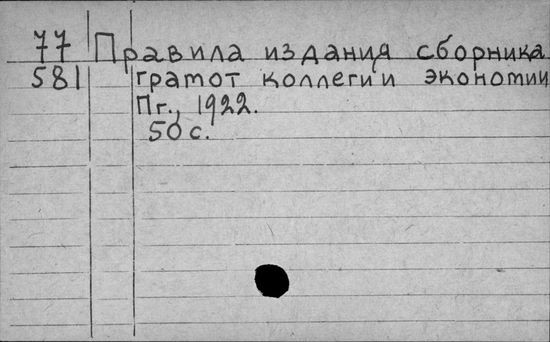 77 Правила издания сборника
581 грамот коллегии экономии
Пг., 1922.
50 с.